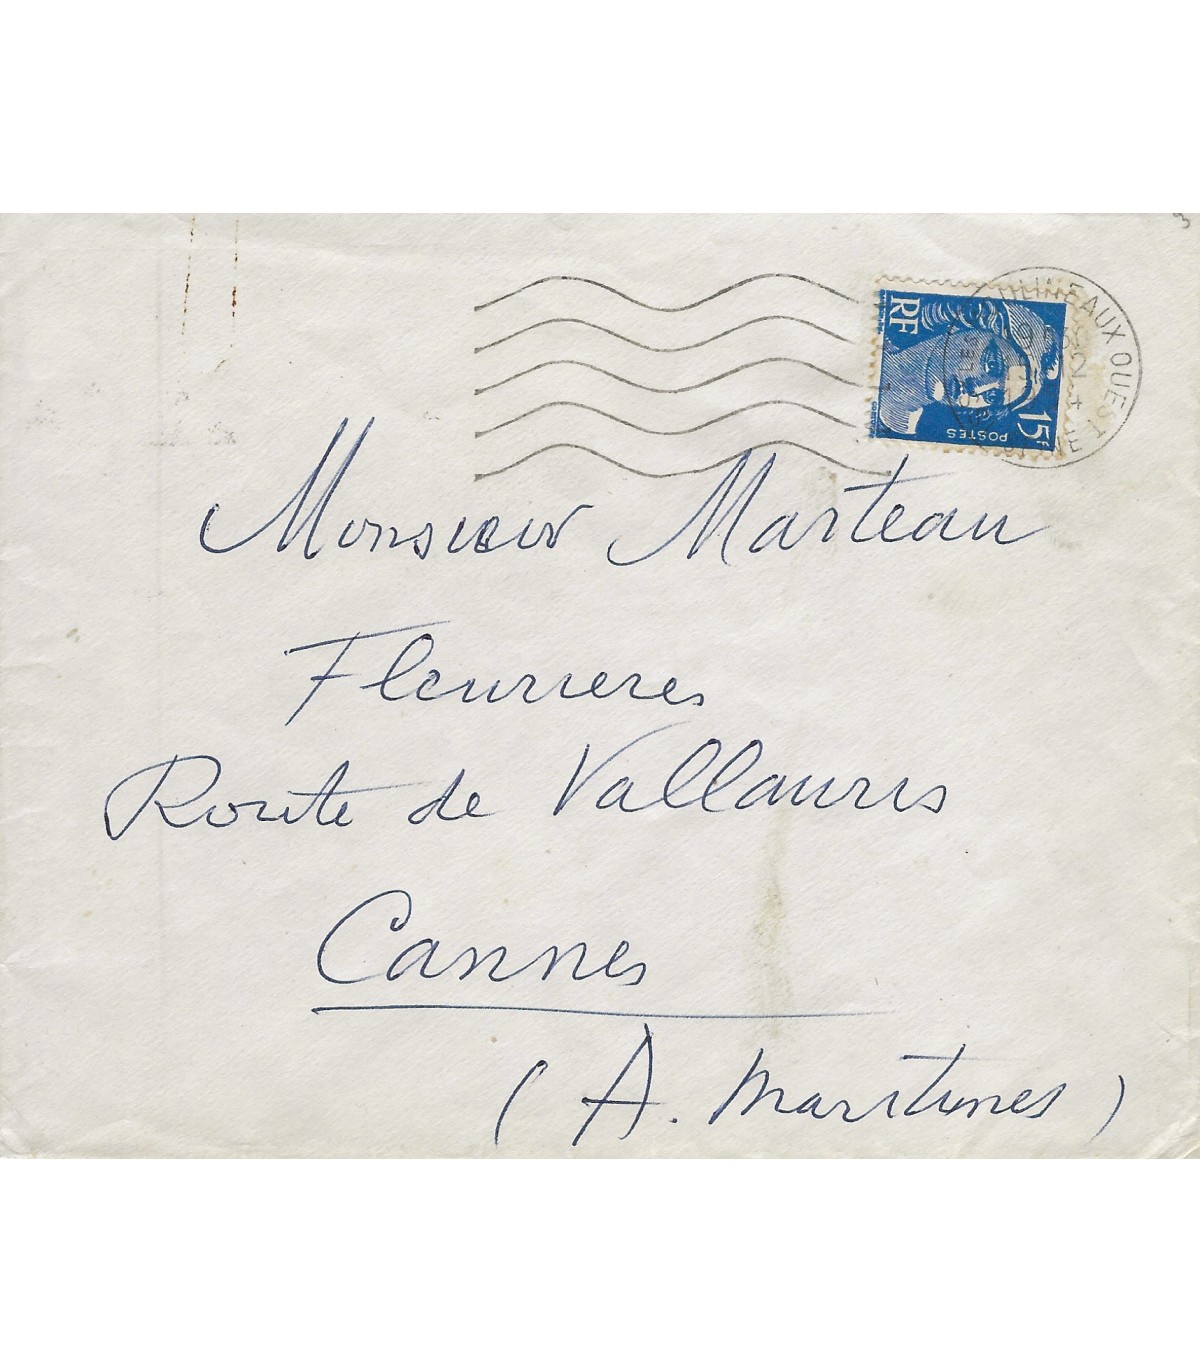 3
RF
15F
POSTES
MOULINEAUX OUEST
Monsieur Marteau
Fleurieres
Route de Vallauris
Cannes
(A. Maritimes)